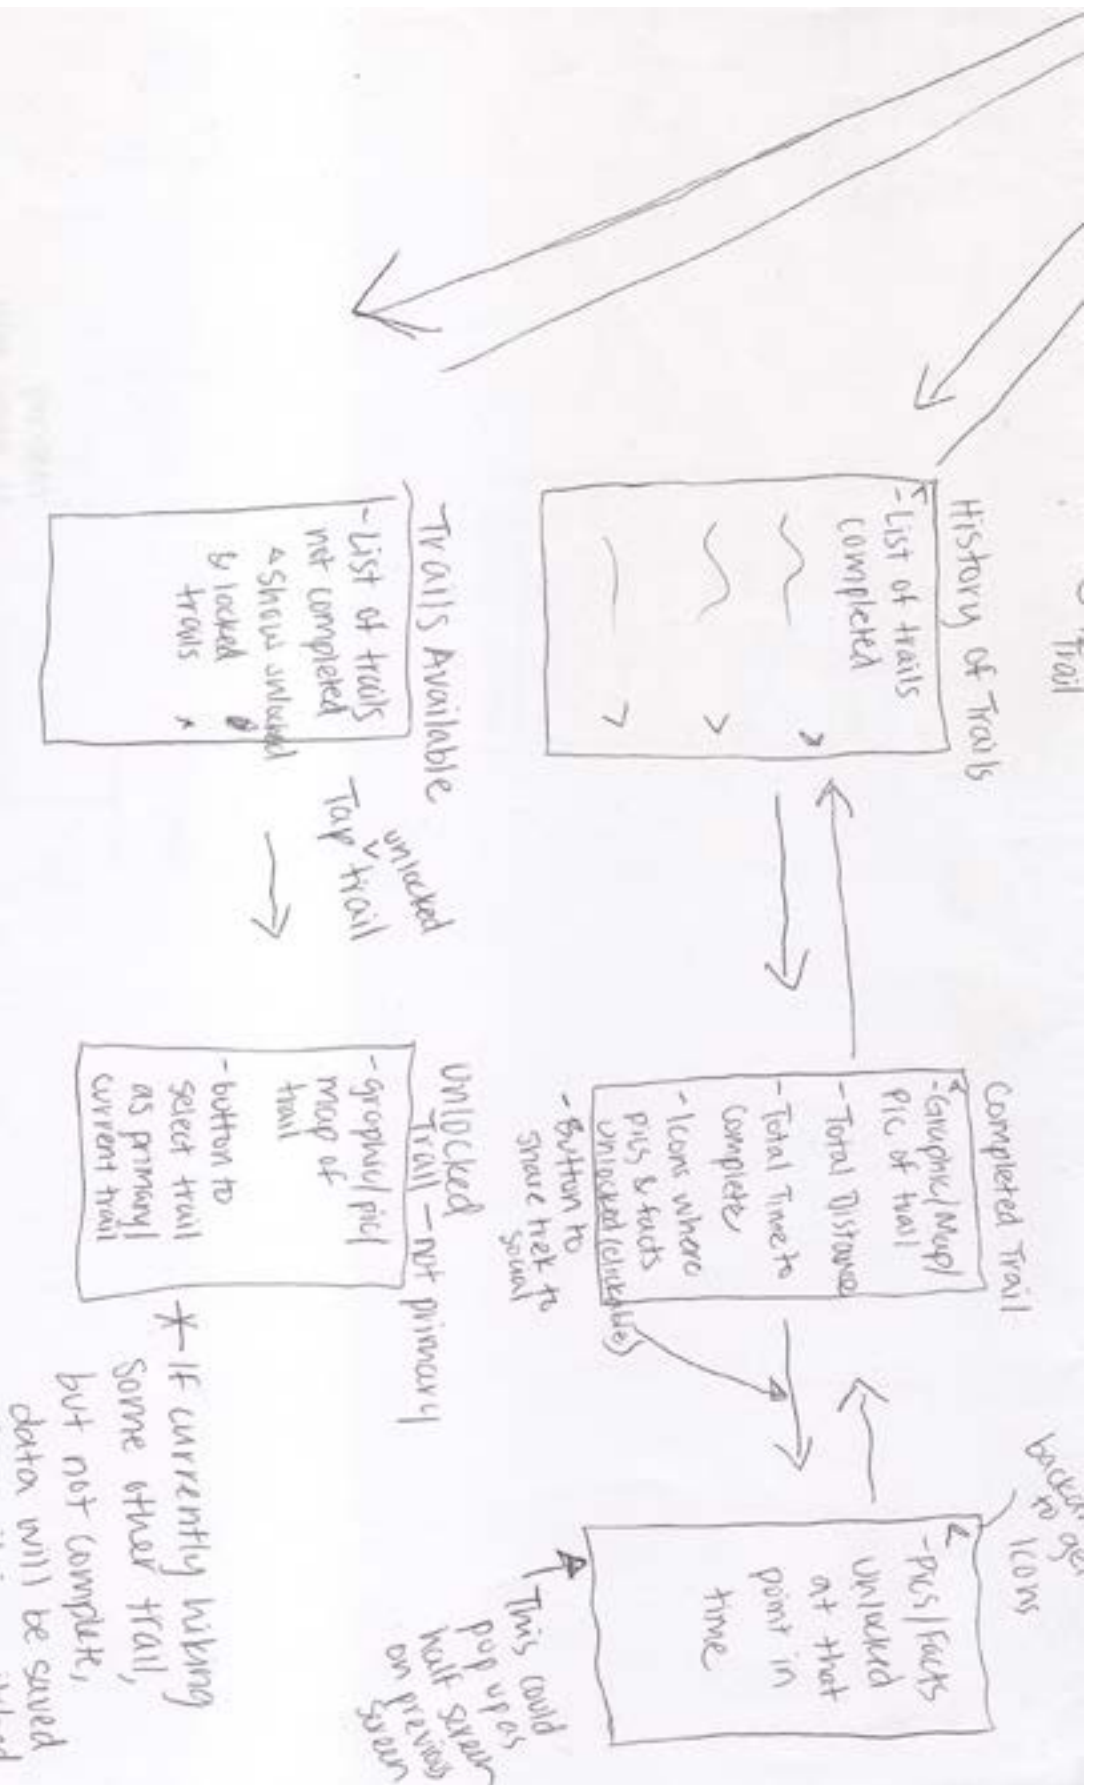 Trail
History of Trails
-List of trails
completed
Completed Trail
-Graphic/Map/
pic of trail
-Total Distance
-Total Time to
complete
-Icons where
pics & facts
unlocked (clickable)
-Button to
share trek to
social
to
icons
-Pics/Facts
unlocked
at that
point in
time
This could
pop up as
half screen
on previous
screen
Trails Available
-List of trails
not completed
show unlocked
& locked
trails
unlocked
Tap trail
Unlocked
Trail - not primary
-graphic/pic/
map of
trail
-button to
select trail
as primary/
current trail
* If currently hiking
some other trail,
but not complete,
data will be saved